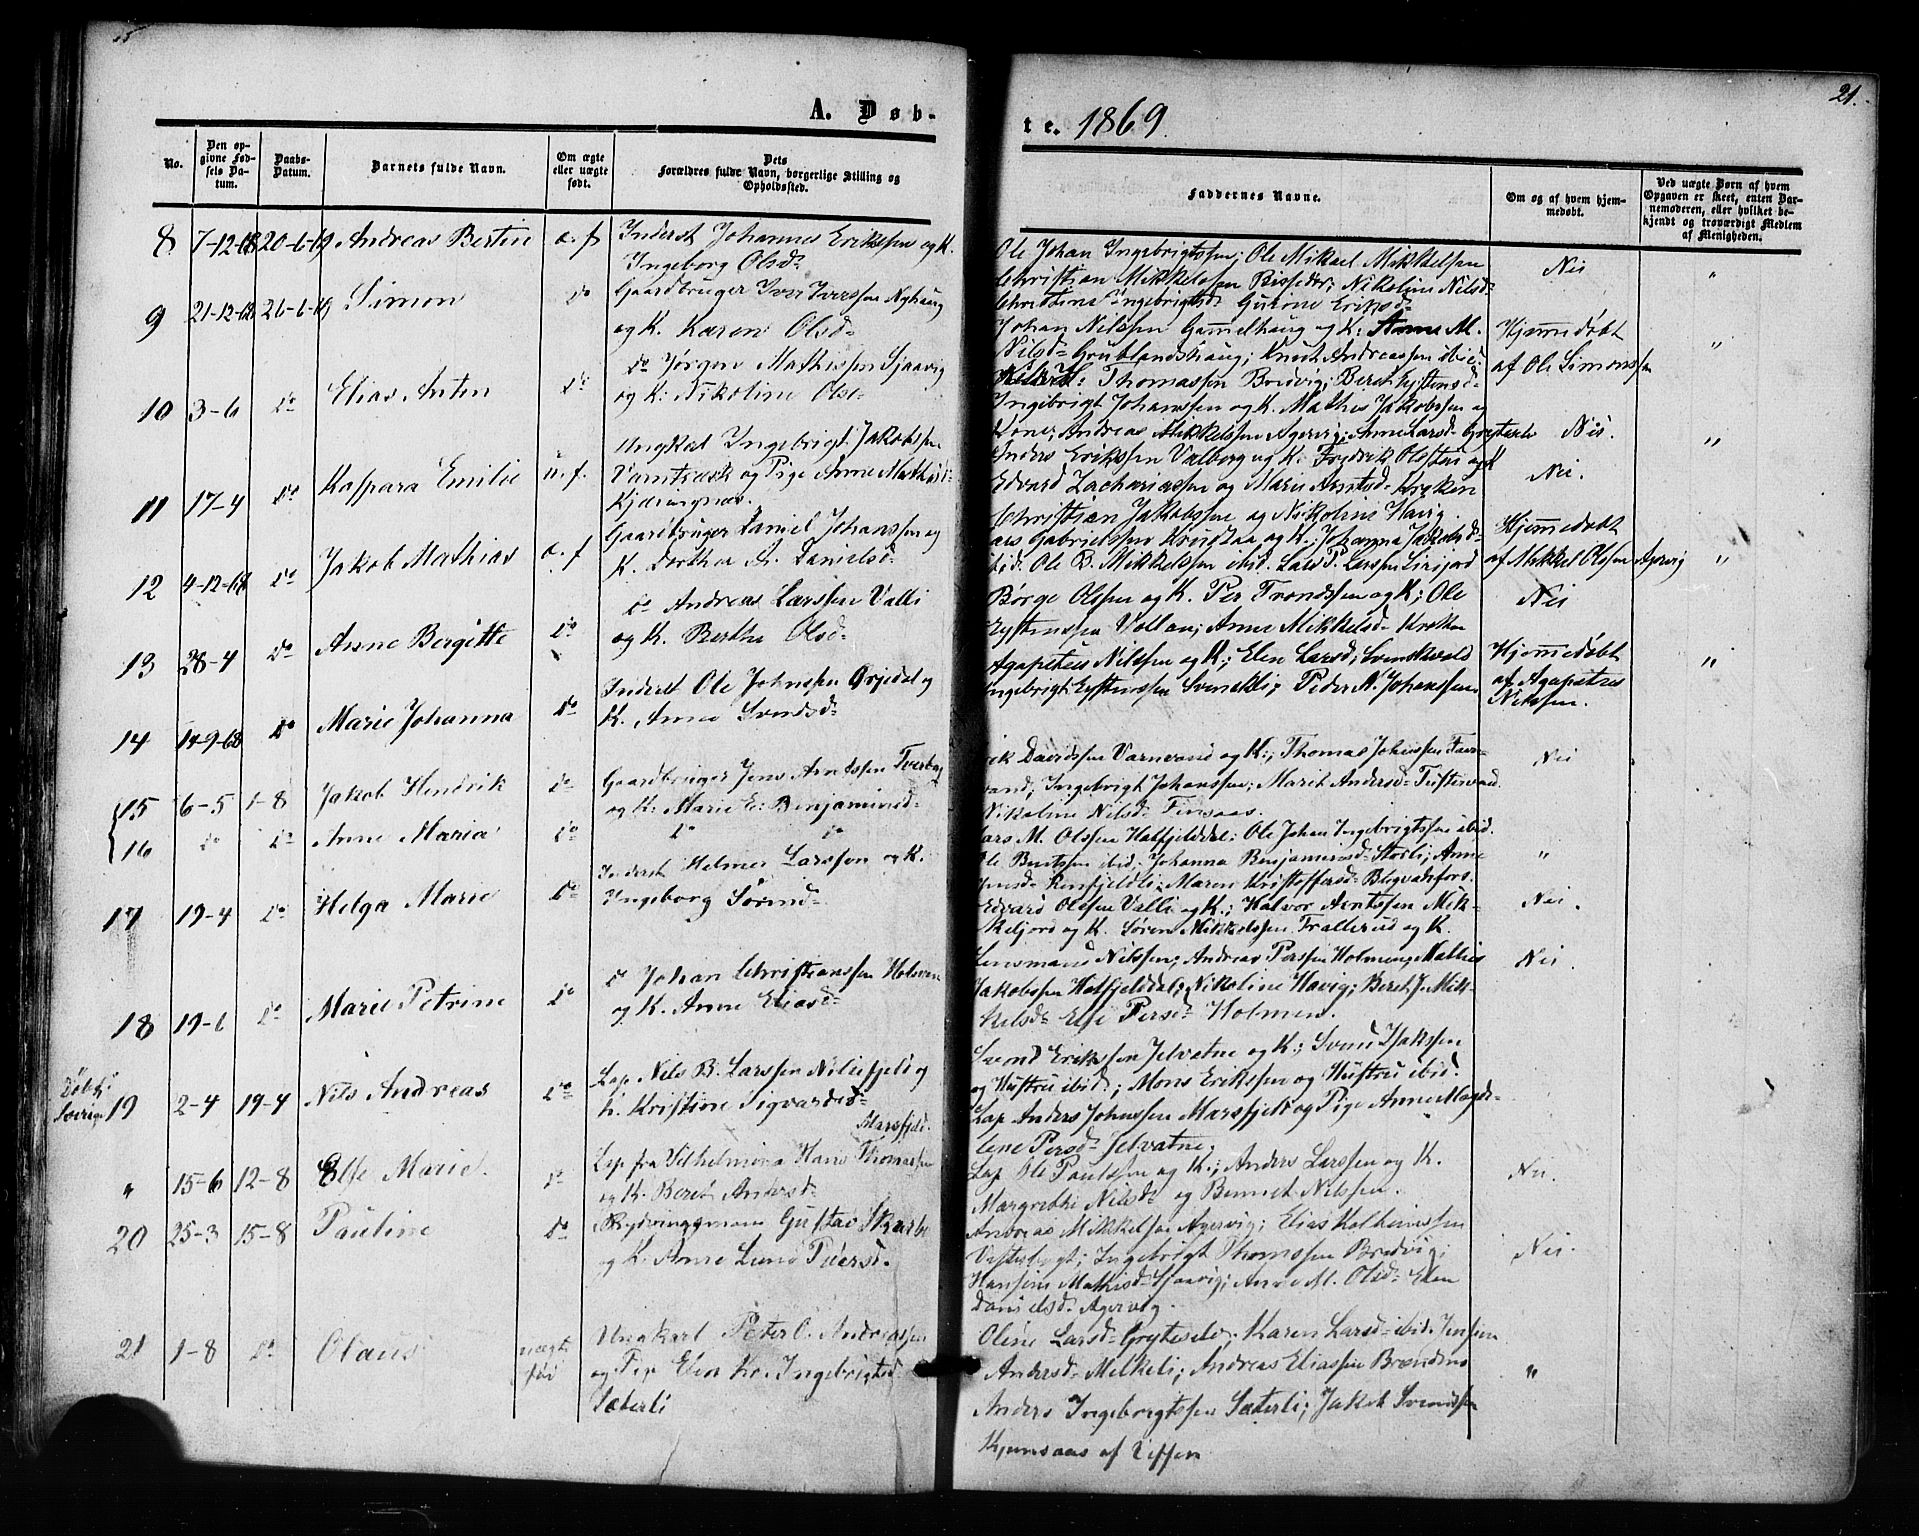 A. Døb-
te. 1869.
21.
No.
Den op-
givne Fød-
sels Da-
tum.
Daabs-
Datum.
Barnets fulde Navn.
Om ægte
eller uægte
født.
Dets
Forældres fulde Navn, borgerlige Stilling og
Opholdssted.
Faddernes Navne.
Om og af hvem hjem-
medøbt.
Ved uægte Børn af hvem
Opgaven er skeet, enten Bar-
nemoderen, eller hvilket be-
kjendt og troværdigt Medlem
af Menigheden.
8 7-12-68 20-6-69 Andreas Bertin æ. f Inderst Johannes Eriksen og K.
Ingeborg Olsd.
Ole Johan Ingebrigtssen; Ole Mikael Mikkelsen
Christian Mikkelssen; Nikoline Nilsd.
Christine Ingebrigtsd. Eriksd.
Nei "
9 21-12-68 26-6-69 Simon do Gaardbruger Iver Iverssen Nyhaug
og K. Karen Olsd.
Johan Nilssen Gammelhaug og K; Anne M.
Nilsd. Grublandshaug; Knut Andreassen ibid
Thomassen Bredvig; Beret Eystensd.
Hjemmedøbt
af Ole Simonssen "
10 3-6 do Elias Antin do do Jørgen Mathissen Sjaavig
og K. Nikoline Olsd.
Ingebrigt Johanssen og K. Mathis Jakobssen og
Kone; Andreas Mikkelssen Agervig; Anne Larsd. Grytselv
Nei. "
11 17-4 do Kaspara Emilie u. f. Ungkal Ingebrigt Jakobsen
Vamtresk og Pige Anne Mathisd.
Kjæringnæs.
Anders Erikssen Valberg og K. Fredrik Olssen og K
Edvard Zachariassen og Marie Arntsd. Kroken
Christian Jakobssen og Nikoline Havig.
Nei.
12 4-12-68 do Jakob Mathias æ. f Gaardbruger Daniel Johanssen og
K. Dorthea A. Danielsd.
Lars Gabrielssen Krutaa og K.; Johanna Jakobsd.
ibid. Ole B. Mikkelssen ibid. Lars P. Larssen
Hjemmedøbt
af Mikkel Olssen Agervig "
13 28-4 do Anne Bergitte do do Andreas Larssen Valli
og K. Berthe Olsd.
Børge Olssen og K. Per Trondssen og K; Ole
Eystenssen Vollan; Anne Mikkelsd. Kroken
Nei
14 14-9-68 do Marie Johanna do Inderst Ole Johnsen Ørjedal og
K. Anne Svendsd.
Agapetus Nilssen og K.; Elen Larsd. Svenskvold
Ingebrigt Eystenssen Svenskli; Peder N. Johanssen
Hjemmedøbt
af Agapetus
Nilssen. "
15 6-5 1-8 Jakob Hendrik do Gaardbruger Jens Arntssen Tverbæk
og K. Marie E. Benjaminsd.
Erik Davidssen Varnvand og K.; Thomas Johnssen
vand; Ingebrigt Johanssen; Marit Andersd. Tustervand.
Nikoline Nilsd. Finsaas.
Nei
16 do do Anne Maria do do do
Lars M. Olssen Hatfjelddal: Ole Johan Ingebrigtssen ibid.
Ole Berntssen ibid. Johanna Benjaminsd. Storli; Anne
Jensd. Renfjeldli; Maren Kristoffersd.
"
17 19-4 do Helga Marie do Inderst Helmer Larssen og K.
Ingeborg Sørensd.
Edvard Olssen Valli og K.; Halvor Arntssen Mik-
keljord og K. Søren Mikkelssen Trallerud og K.
Nei.
18 19-6 do Marie Petrine do do Johan Christianssen Holmen
og K. Anne Eliasd.
Lensmand Nilssen; Andreas Perssen Holmen; Mathis
Jakobssen Hatfjelddal; Nikoline Havig; Beret J. Mik-
kelsd. Else Persd. Holmen.
Nei.
Døbt i
Sverige 19 2-4 19-4 Nils Andreas do Lap Nils B. Larssen og
K. Kristine Sigvardsd.
Marsfjeld.
Svend Erikssen Jelvatne og K.; Svend Isakssen
og Hustru ibid; Mons Erikssen og Hustru ibid.
Lap Anders Johnssen Marsfjeld og Pige Anne Magda-
lene Persd. Jelvatne.
" 15-6 12-8 Else Marie do Lap fra Vilhelmina Hans Thomassen
og K. Beret Andersd.
Lap Ole Paulssen og K.; Anders Larssen og K.
Margrethe Nilsd. og Bennet Nilssen.
Nei.
20 25-3 15-8 Pauline do Rydningsmand Gustav Skarbo
og K. Anne Lund Pedersd.
Andreas Mikkelsen Agervig; Elias
Vesterbugt; Ingebrigt Thomssen Bredvig;
Hansine Mathisd. Sjaavig; Anne M. Olsd. Elen
Danielsd. Agervig.
Nei.
21 1-8 do Olaus uægte
fød Ungkarl Peter O. Andreassen
og Pige Elen Kr. Ingebrigtsd.
Sæterli
Oline Larsd. Grytselv; Karen Larsd. ibid. Jensine
Andersd. Melkeli; Andreas Eliassen
Anders Ingebrigtssen Sæterli; Jakob Svendssen
Kjønsaas af Vefsen
"